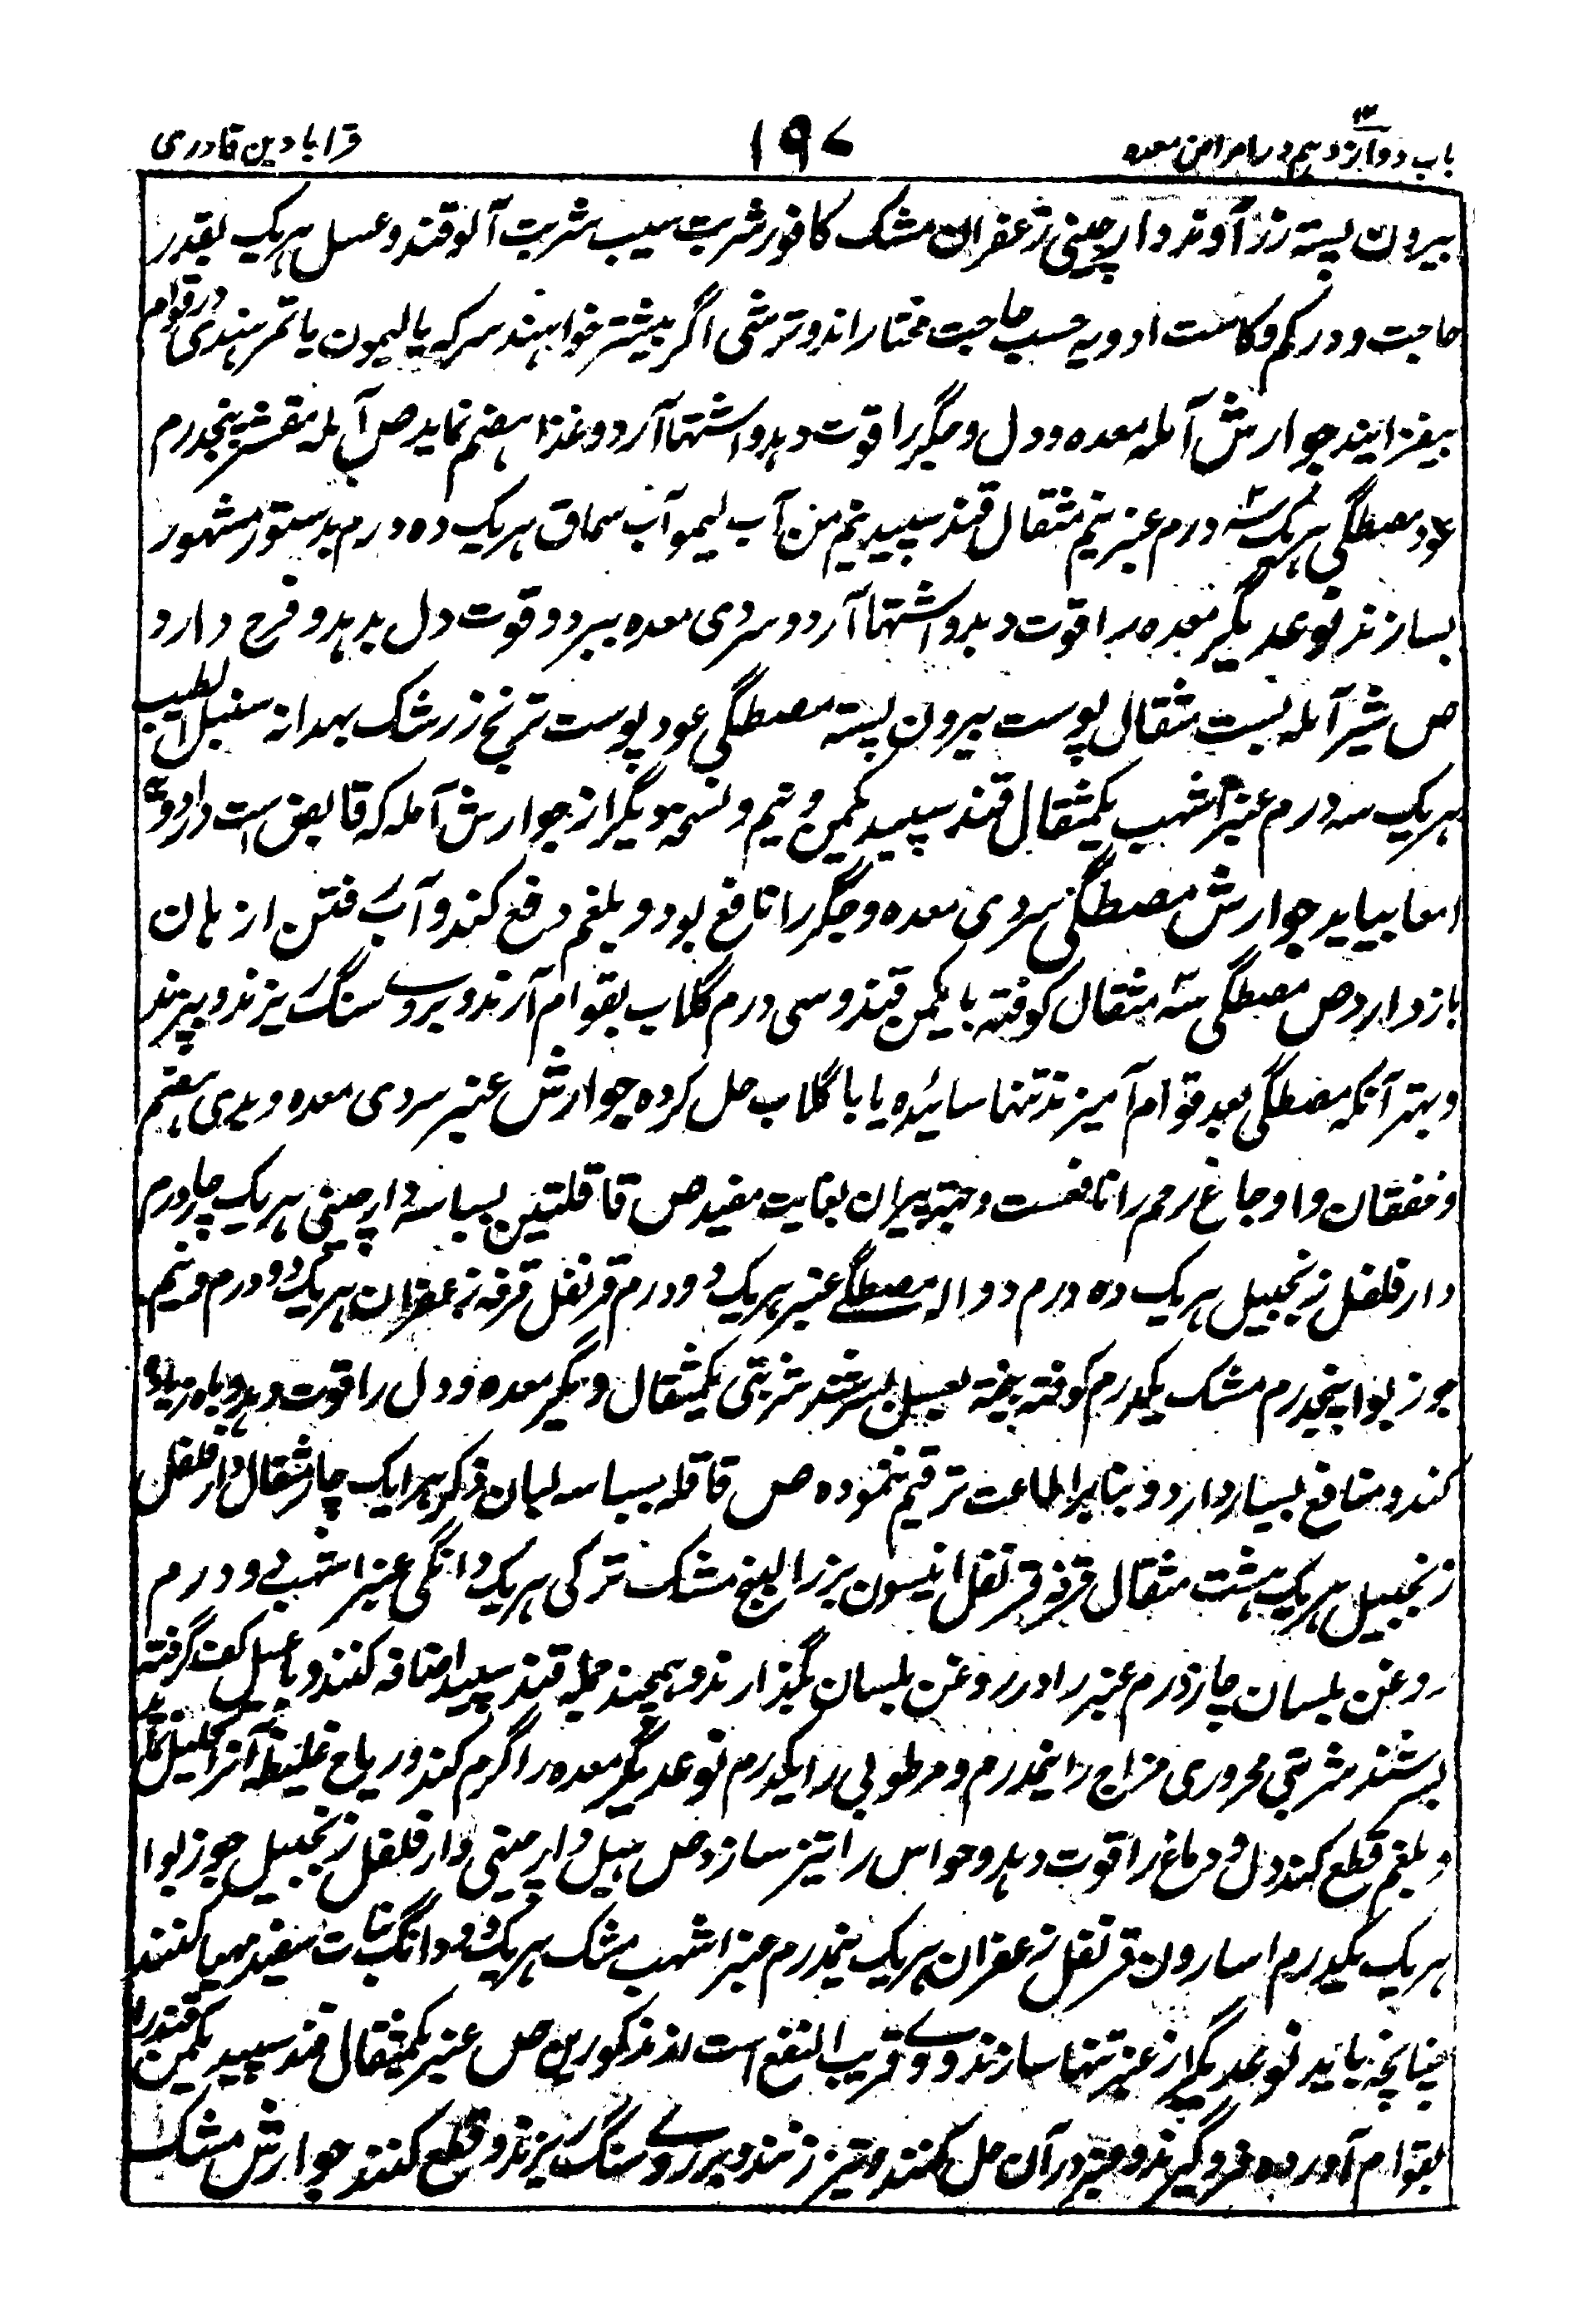 باب دوازدهم در امراض معده
۱۹۷
قرابادین قادری
بیرون پسته زرآوند دارچینی زعفران مشک کافور شربت سیب شربت آلو قند و عسل هریک بقدر
حاجت و در کم و کاست ادویه حسب حاجت مختار اند و ترشی اگر بیشتر خواهند سرکه یا لیمون یا تمر هندی در قوام
بیفزایند جوارش آمله معده و دل و جگر را قوت دهد و اشتها آرد و غذا هضم نماید ص آمله مقشر پنجدرم
عود مصطگی هریک سه درم عنبر نیم مثقال قند سپید نیم من آب لیمو آب سماق هریک ده درم بدستور مشهور
بسازند نوعدیگر معده را قوت دهد و اشتها آرد و سردی معده ببرد و قوت دل بدهد و فرح دارد
ص شیر آمله بست مثقال پوست بیرون پسته مصطگی عود پوست ترنج زرشک بهدانه سنبل الطیب
هریک سه درم عنبر اشهب یکمثقال قند سپید یکمن و نیم و نسخه دیگر از جوارش آمله که قابض است در ادویه
امعا بیاید جوارش مصطگی سردی معده و جگر را نافع بود و بلغم دفع کند و آب رفتن از دهان
باز دارد ص مصطگی سه مثقال کوفته با یکمن قند و سی درم گلاب بقوام آرند و بروے سنگ ریزند و ببرند
و بهتر آنکه مصطگی بعد قوام آمیزند تنها سائیده یا با گلاب حل کرده جوارش عنبر سردی معده و بدی هضم
و خفقان و اوجاع رحم را نافعست و جهة پیران بغایت مفید ص قاقلتین بسباسه دارچینی هریک چاردرم
دارفلفل زنجبیل هریک ده درم دواله مصطگے عنبر هریک دو درم قرنفل قرفه زعفران هریک دو درم و نیم
جوزبوا پنجدرم مشک یکدرم کوفته بیخته بعسل بسرشند شربتی یکمثقال دیگر معده و دل را قوت دهد و باه زیاده
کند و منافع بسیار دارد و بنابر اطاعت ترقیم نموده ص قاقله بسباسه لبان ذکر هر ایک چار مثقال دارفلفل
زنجبیل هریک هشت مثقال قرفه قرنفل انیسون بزرالبنج مشک ترکی هریک دانگی عنبر اشهب دو درم
روغن بلسان چاردرم عنبر را در روغن بلسان بگذارند و همچند جمله قند سپید اضافه کنند و باعسل کف گرفته
بسرشند شربتی محروری مزاج را نیمدرم و مرطوبی را یکدرم نوعدیگر معده را گرم کند و ریاح غلیظه آنرا تحلیل نماید
و بلغم قطع کند دل و دماغ را قوت دهد و حواس را تیز سازد ص هیل دارچینی دارفلفل زنجبیل جوزبوا
هریک یکدرم اسارون قرنفل زعفران هریک نیمدرم عنبر اشهب مشک هریک دو دانگ نبات سفید مهیا کنند
چنانچه باید نوعدیگر از عنبر تنها سازند و وے قریب النفع است از مذکورین ص عنبر یکمثقال قند سپید یکمن قند را
بقوام آورده فرو گیرند و عنبر در آن حل کنند و تیز زنند و بر روے سنگ ریزند و قطع کنند جوارش مشک